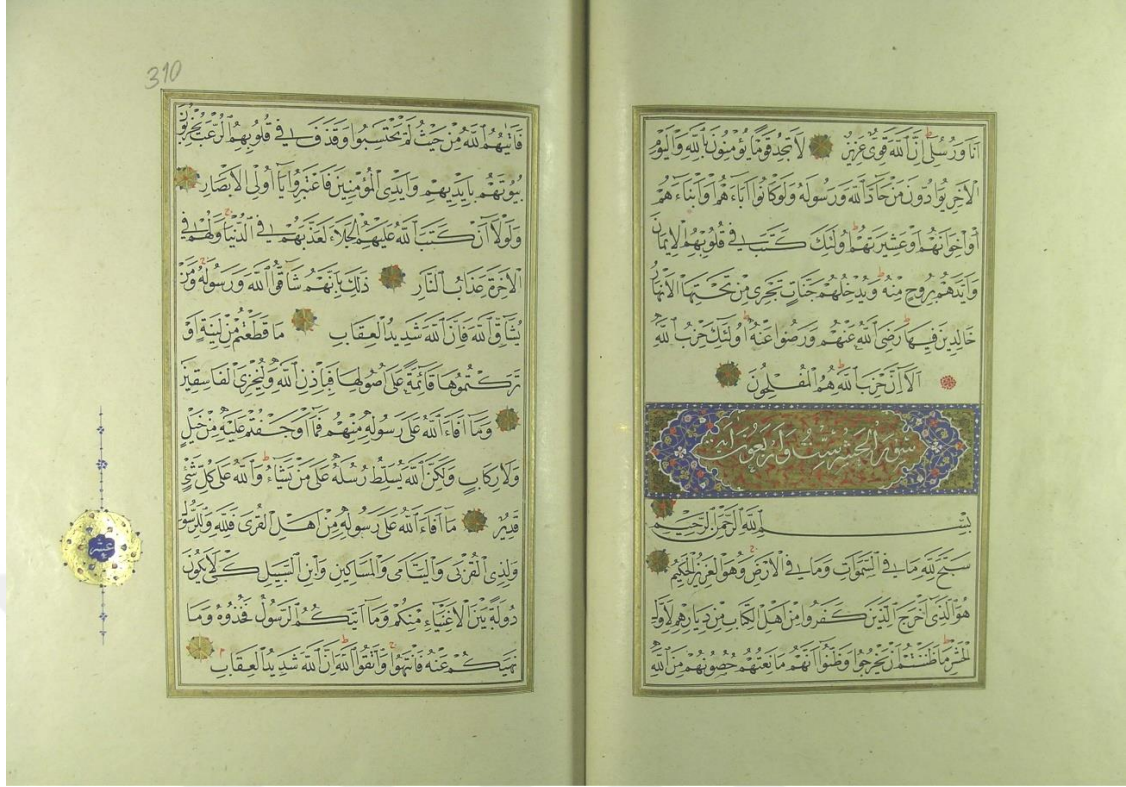 اَنَا وَرُسُلِى اِنَّ اللّٰهَ قَوِىٌّ عَزِيزٌ لَا تَجِدُ قَوْمًا يُؤْمِنُونَ بِاللّٰهِ وَالْيَوْمِ
الْاٰخِرِ يُوَادُّونَ مَنْ حَادَّ اللّٰهَ وَرَسُولَهُ وَلَوْ كَانُوا اٰبَاءَهُمْ اَوْ اَبْنَاءَهُمْ
اَوْ اِخْوَانَهُمْ اَوْ عَشِيرَتَهُمْ اُولٰئِكَ كَتَبَ فِى قُلُوبِهِمُ الْاِيمَانَ
وَاَيَّدَهُمْ بِرُوحٍ مِنْهُ وَيُدْخِلُهُمْ جَنَّاتٍ تَجْرِى مِنْ تَحْتِهَا الْاَنْهَارُ
خَالِدِينَ فِيهَا رَضِىَ اللّٰهُ عَنْهُمْ وَرَضُوا عَنْهُ اُولٰئِكَ حِزْبُ اللّٰهِ
اَلَا اِنَّ حِزْبَ اللّٰهِ هُمُ الْمُفْلِحُونَ
سورة الحشر ست واربعون اية
بِسْمِ اللّٰهِ الرَّحْمٰنِ الرَّحِيمِ
سَبَّحَ لِلّٰهِ مَا فِى السَّمٰوَاتِ وَمَا فِى الْاَرْضِ وَهُوَ الْعَزِيزُ الْحَكِيمُ
هُوَ الَّذِى اَخْرَجَ الَّذِينَ كَفَرُوا مِنْ اَهْلِ الْكِتَابِ مِنْ دِيَارِهِمْ لِاَوَّلِ
الْحَشْرِ مَا ظَنَنْتُمْ اَنْ يَخْرُجُوا وَظَنُّوا اَنَّهُمْ مَانِعَتُهُمْ حُصُونُهُمْ مِنَ اللّٰهِ
310
فَاَتٰيهُمُ اللّٰهُ مِنْ حَيْثُ لَمْ يَحْتَسِبُوا وَقَذَفَ فِى قُلُوبِهِمُ الرُّعْبَ يُخْرِبُونَ
بُيُوتَهُمْ بِاَيْدِيهِمْ وَاَيْدِى الْمُؤْمِنِينَ فَاعْتَبِرُوا يَا اُولِى الْاَبْصَارِ
وَلَوْلَا اَنْ كَتَبَ اللّٰهُ عَلَيْهِمُ الْجَلَاءَ لَعَذَّبَهُمْ فِى الدُّنْيَا وَلَهُمْ فِى
الْاٰخِرَةِ عَذَابُ النَّارِ ذٰلِكَ بِاَنَّهُمْ شَاقُّوا اللّٰهَ وَرَسُولَهُ وَمَنْ
يُشَاقِّ اللّٰهَ فَاِنَّ اللّٰهَ شَدِيدُ الْعِقَابِ مَا قَطَعْتُمْ مِنْ لِينَةٍ اَوْ
تَرَكْتُمُوهَا قَائِمَةً عَلٰى اُصُولِهَا فَبِاِذْنِ اللّٰهِ وَلِيُخْزِىَ الْفَاسِقِينَ
وَمَا اَفَاءَ اللّٰهُ عَلٰى رَسُولِهِ مِنْهُمْ فَمَا اَوْجَفْتُمْ عَلَيْهِ مِنْ خَيْلٍ
وَلَا رِكَابٍ وَلٰكِنَّ اللّٰهَ يُسَلِّطُ رُسُلَهُ عَلٰى مَنْ يَشَاءُ وَاللّٰهُ عَلٰى كُلِّ شَىْءٍ
قَدِيرٌ مَا اَفَاءَ اللّٰهُ عَلٰى رَسُولِهِ مِنْ اَهْلِ الْقُرٰى فَلِلّٰهِ وَلِلرَّسُولِ
وَلِذِى الْقُرْبٰى وَالْيَتَامٰى وَالْمَسَاكِينِ وَابْنِ السَّبِيلِ كَىْ لَا يَكُونَ
دُولَةً بَيْنَ الْاَغْنِيَاءِ مِنْكُمْ وَمَا اٰتٰيكُمُ الرَّسُولُ فَخُذُوهُ وَمَا
نَهٰيكُمْ عَنْهُ فَانْتَهُوا وَاتَّقُوا اللّٰهَ اِنَّ اللّٰهَ شَدِيدُ الْعِقَابِ
عشر